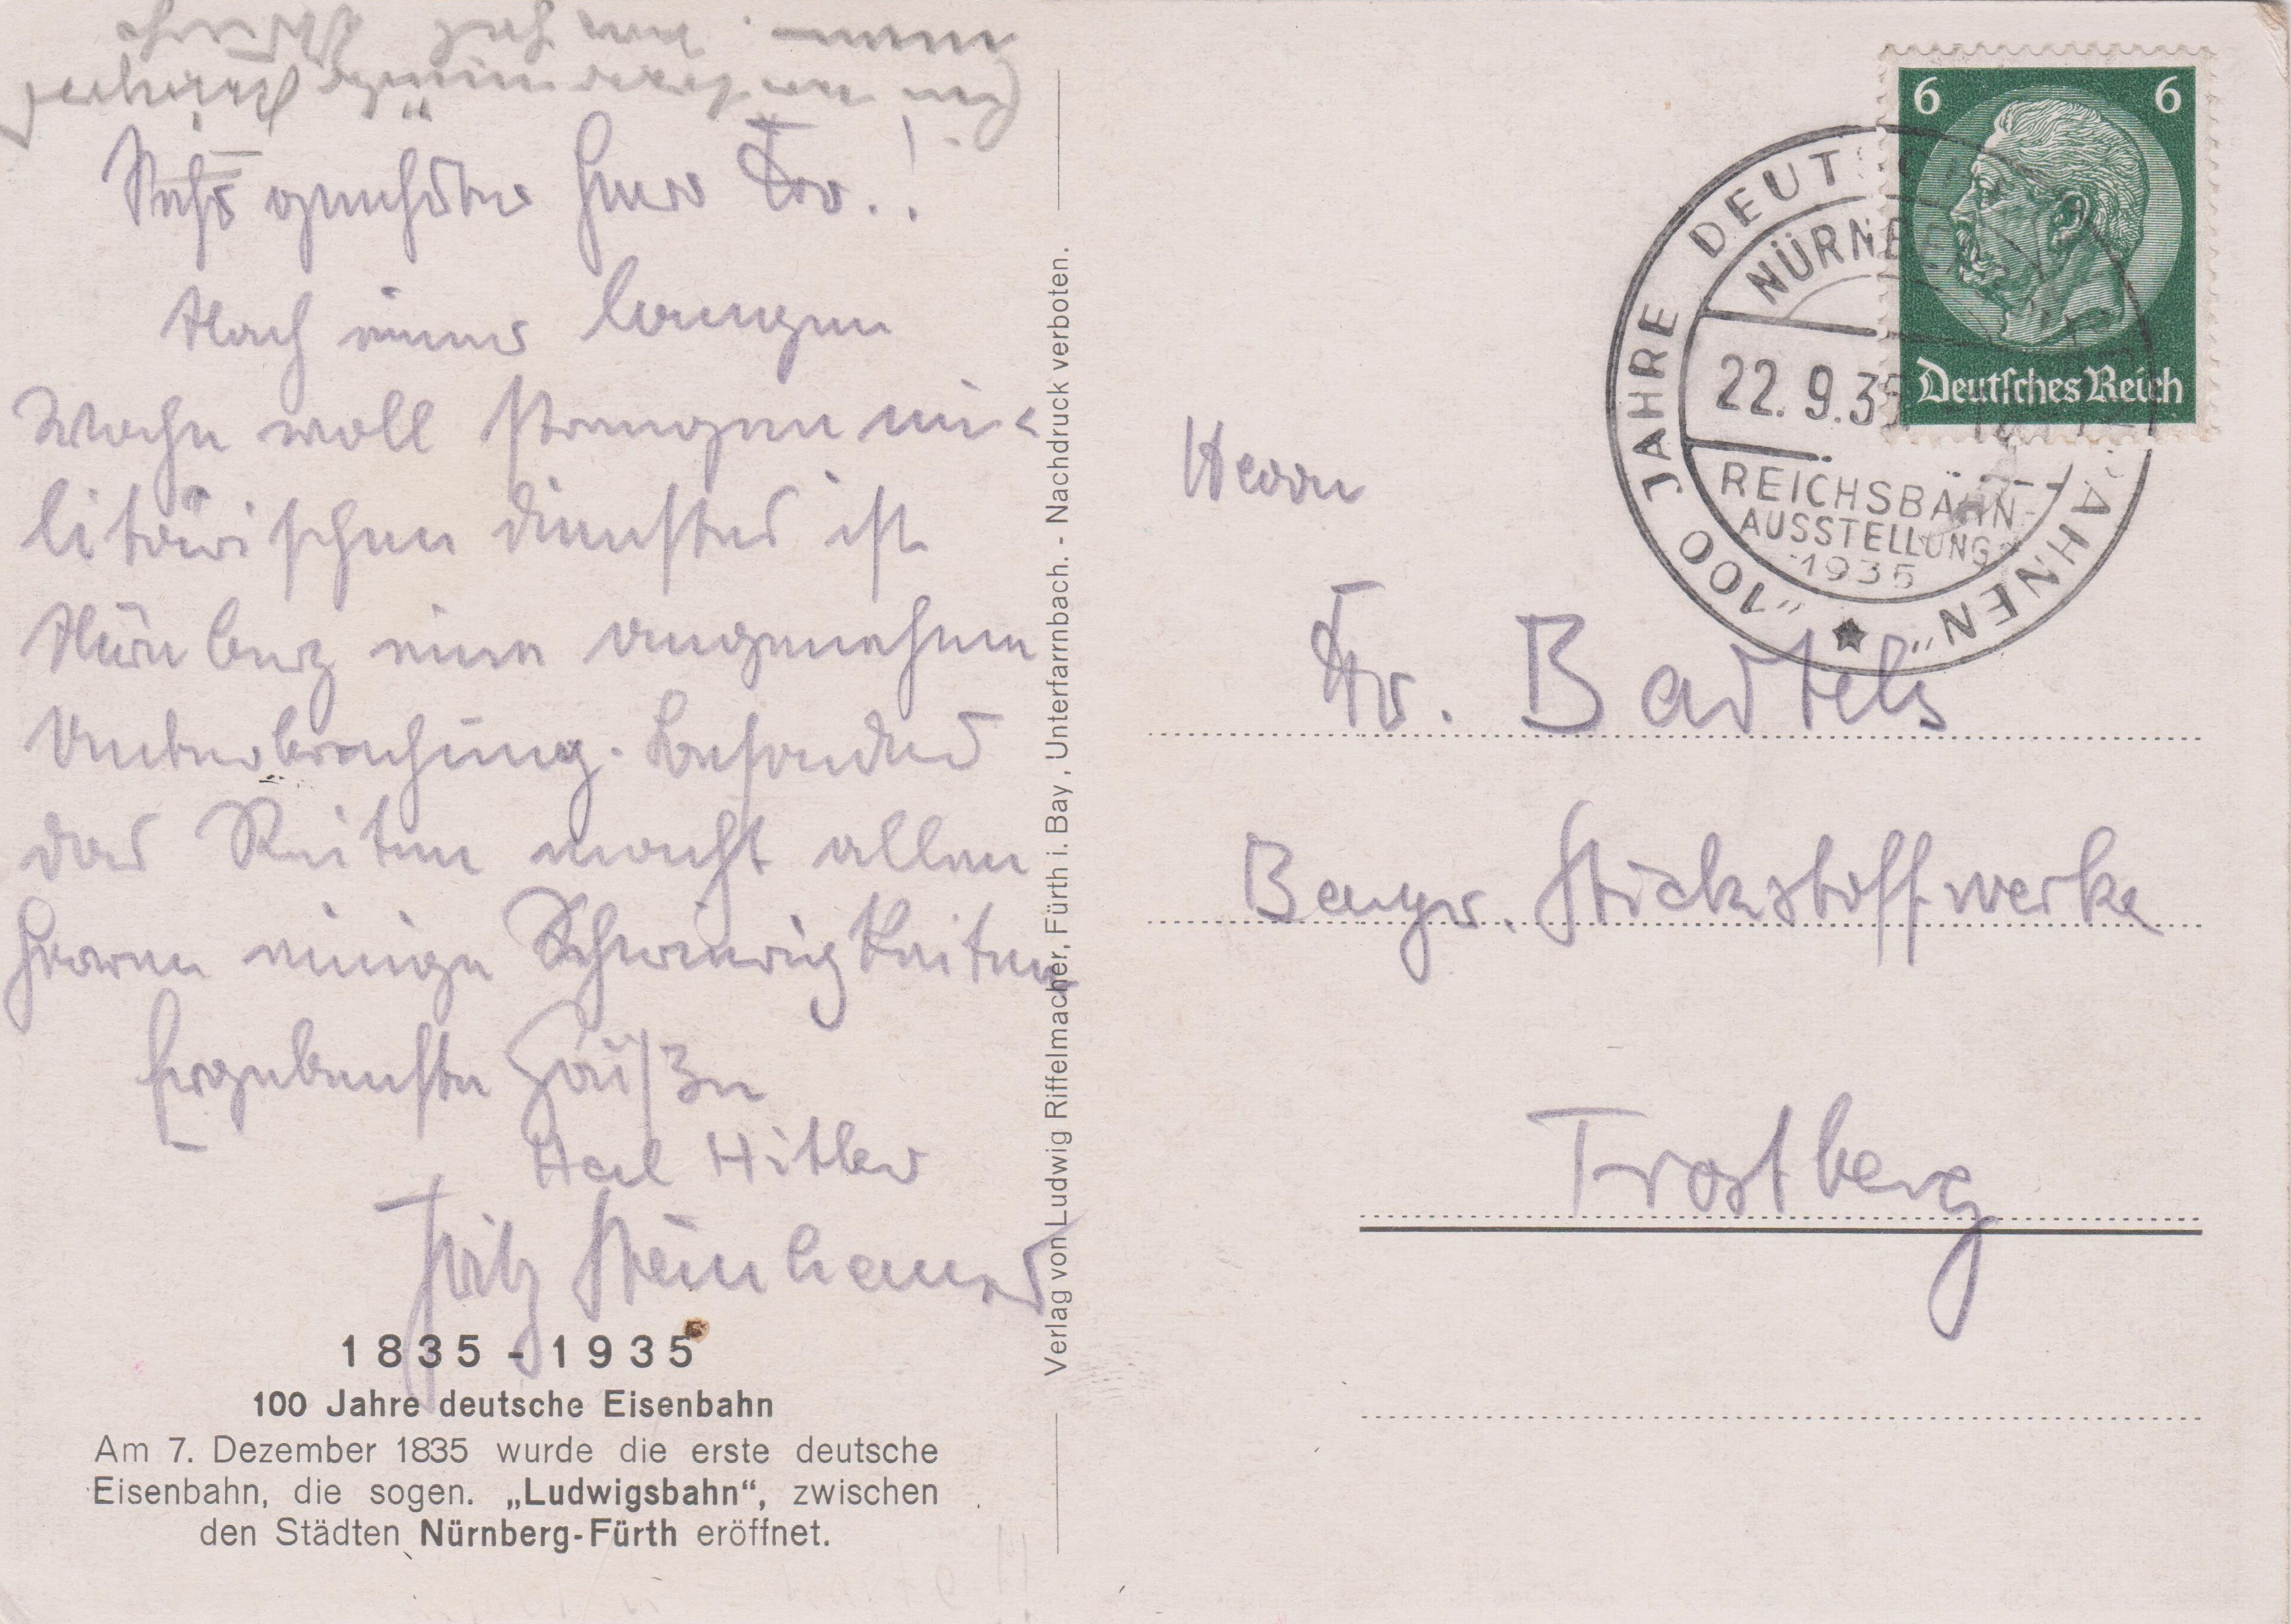 Sehr geehrter Herr Dr.!
Nach einer langen
Woche voll strengen mi-
litärischen Dienstes ist
Nürnberg eine angenehme
Unterbrechung. Besonders
das Reiten macht allen
Herren einige Schwierigkeiten
Ergebenste Grüße
Heil Hitler
Fritz Steinhauser
1835 - 1935
100 Jahre deutsche Eisenbahn
Am 7. Dezember 1835 wurde die erste deutsche
Eisenbahn, die sogen. „Ludwigsbahn“, zwischen
den Städten Nürnberg-Fürth eröffnet.
Verlag von Ludwig Riffelmacher, Fürth i. Bay, Unterfarrnbach. - Nachdruck verboten.
6 6
Deutsches Reich
„100 JAHRE DEUTSCHE EISENBAHNEN“
NÜRNBERG
22.9.35
REICHSBAHN-
AUSSTELLUNG
1935
Herrn
Dr. Bartels
Bayr. Stickstoffwerke
Trostberg